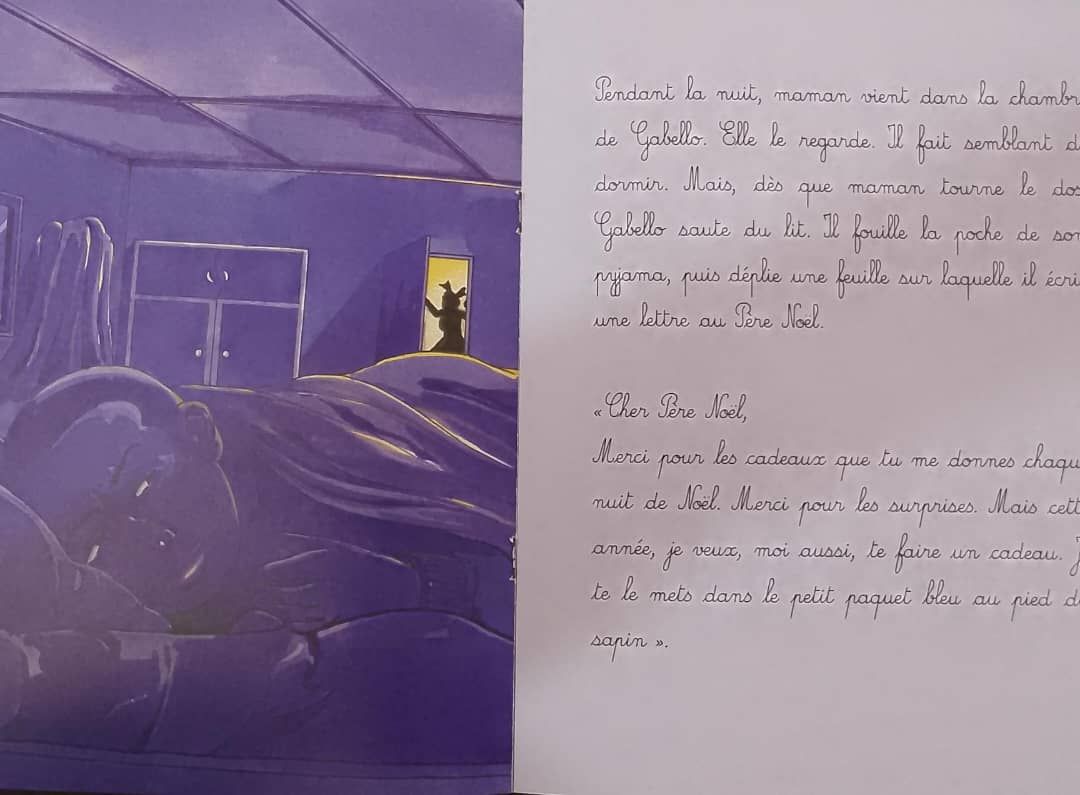 Pendant la nuit, maman vient dans la chambr
de Gabello. Elle le regarde. Il fait semblant d
dormir. Mais, dès que maman tourne le dos
Gabello saute du lit. Il fouille la poche de son
pyjama, puis déplie une feuille sur laquelle il écri
une lettre au Père Noël.
« Cher Père Noël,
Merci pour les cadeaux que tu me donnes chaqu
nuit de Noël. Merci pour les surprises. Mais cett
année, je veux, moi aussi, te faire un cadeau. J
te le mets dans le petit paquet bleu au pied d
sapin ».